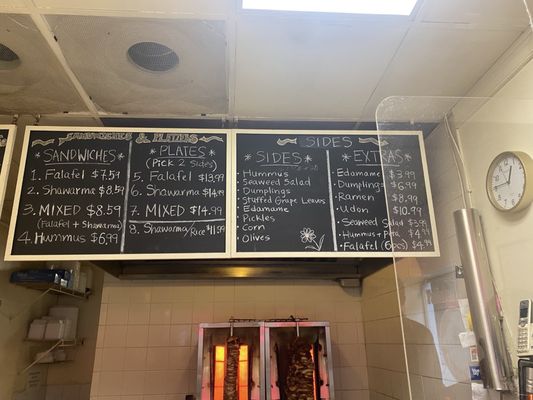 SANDWICHES & PLATTERS
* SANDWICHES *
1. Falafel $7.59
2. Shawarma $8.59
3. MIXED $8.59
(Falafel + Shawarma)
4. Hummus $6.99
* PLATES *
(Pick 2 Sides)
5. Falafel $13.99
6. Shawarma $14.99
7. MIXED $14.99
8. Shawarma/Rice $11.59
SIDES
* SIDES *
• Hummus
• Seaweed Salad
• Dumplings
• Stuffed Grape Leaves
• Edamame
• Pickles
• Corn
• Olives
* EXTRAS *
• Edamame $3.99
• Dumplings $6.99
• Ramen $8.99
• Udon $10.99
• Seaweed Salad $3.99
• Hummus + Pita $4.99
• Falafel (6pcs) $4.99